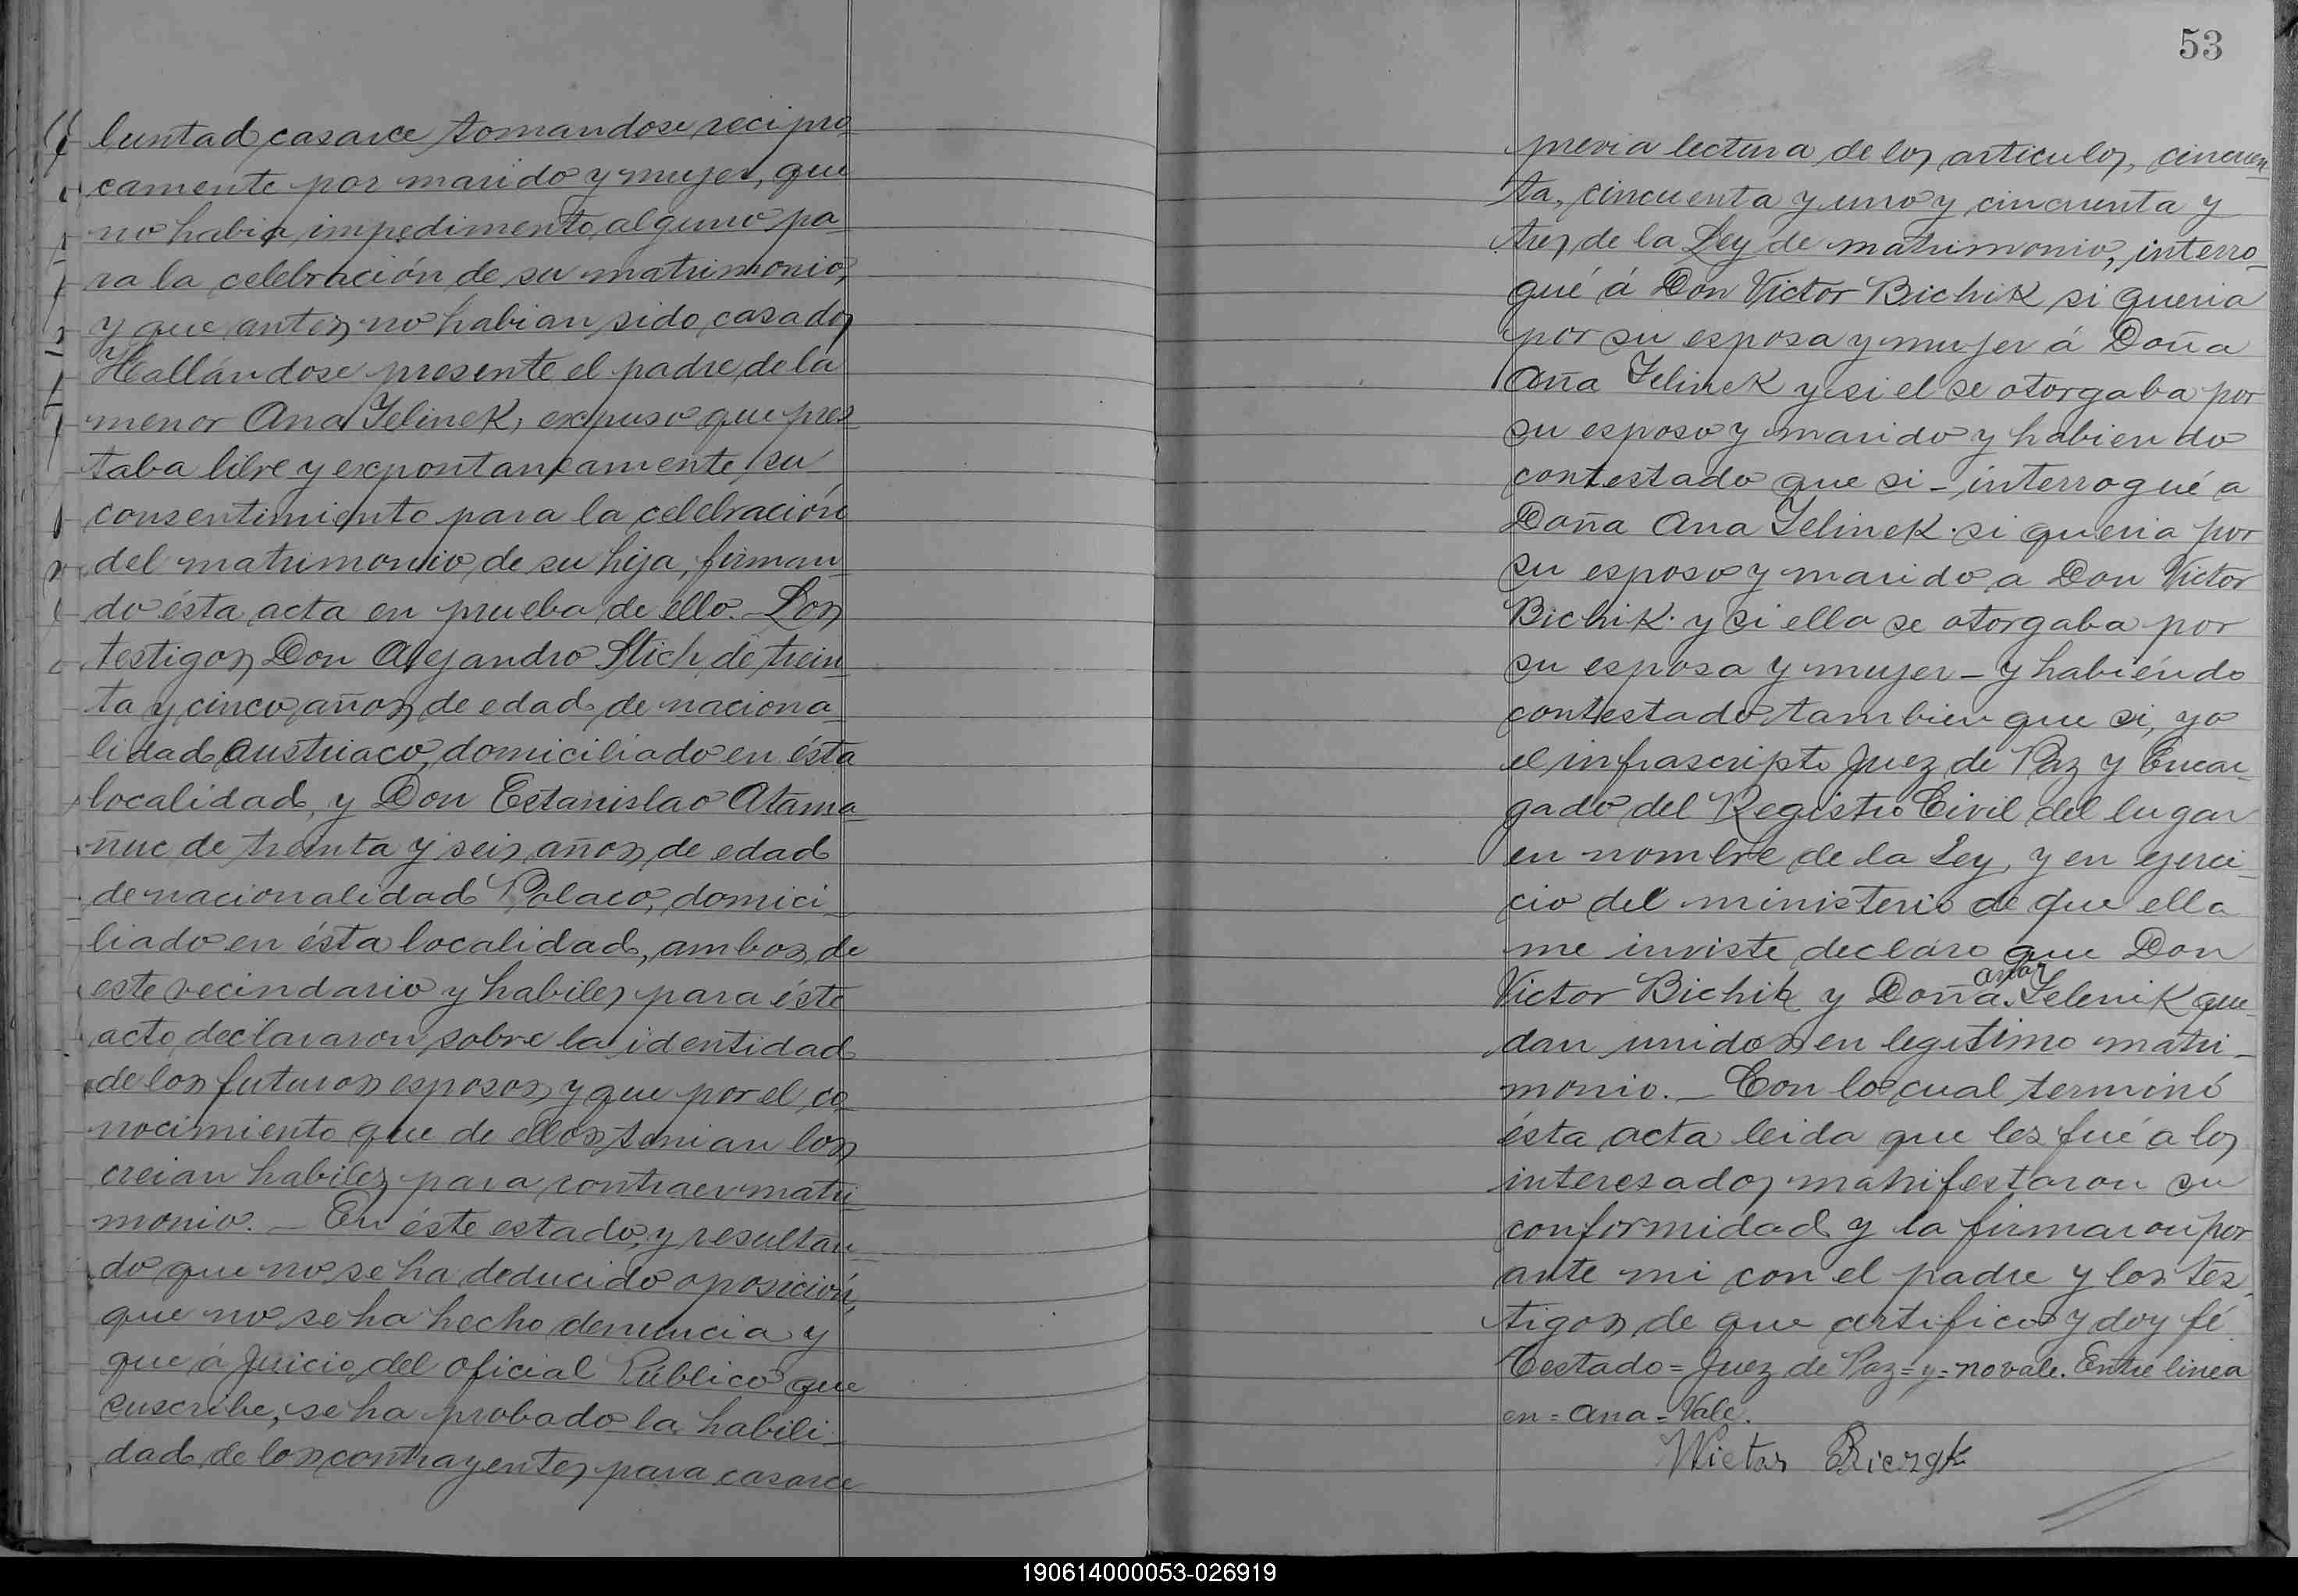 luntad casarce tomandose recipro
camente por marido y mujer, que
no habia impedimento alguno pa-
ra la celebración de su matrimonio,
y que antes no habian sido casados
Hallándose presente el padre de la
menor Ana Jelinek, expuso que pres-
taba libre y expontaneamente su
consentimiento para la celebración
del matrimonio de su hija, firman-
do ésta acta en prueba de ello. Los
testigos Don Alejandro Stich de trein-
ta y cinco años de edad de naciona-
lidad austriaco, domiciliado en ésta
localidad, y Don Estanislao Atama-
ñuc de treinta y seis años de edad
de nacionalidad Polaco, domici-
liado en ésta localidad, ambos de
este vecindario y habiles para éste
acto declararon sobre la identidad
de los futuros esposos y que por el co-
nocimiento que de ellos tenian los
creian habiles para contraer matri-
monio. - En éste estado, y resultan-
do que no se ha deducido oposición,
que no se ha hecho denuncia y
que á Juicio del oficial Público que
suscribe, se ha probado la habili-
dad de los contrayentes para casarce
53
previa lectura de los articulos, cincuen-
ta, cincuenta y uno y cincuenta y
tres de la Ley de matrimonio, interro-
gué á Don Victor Bichik si queria
por su esposa y mujer á Doña
Aña Jelinek y si el se otorgaba por
su esposo y marido y habiendo
contestado que si - interrogué a
Doña Ana Jelinek si queria por
su esposo y marido a Don Victor
Bichik y si ella se otorgaba por
su esposa y mujer - y habiéndo
contestado tambien que si, yo
el infrascripto Juez de Paz y Encar-
gado del Registro Civil del lugar
en nombre de la Ley, y en ejerci-
cio del ministerio de que ella
me inviste declaro que Don
Victor Bichik y Doña Ana Jelenik que-
dan unidos en legitimo matri-
monio. - Con lo cual terminó
ésta acta leida que les fué a los
interesados manifestaron su
conformidad y la firmaron por
ante mi con el padre y los tes-
tigos de que certifico y doy fé
Testado = Juez de Paz = y = no vale. Entre linea
en = Ana = Vale.
Wictar Biczgk
190614000053-026919